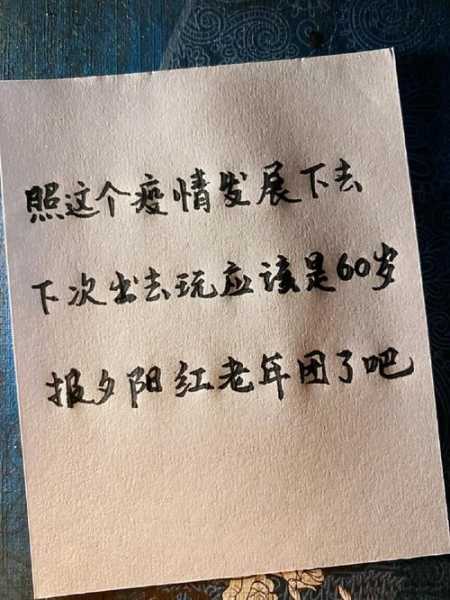 照这个疫情发展下去
下次出去玩应该是60岁
报夕阳红老年团了吧